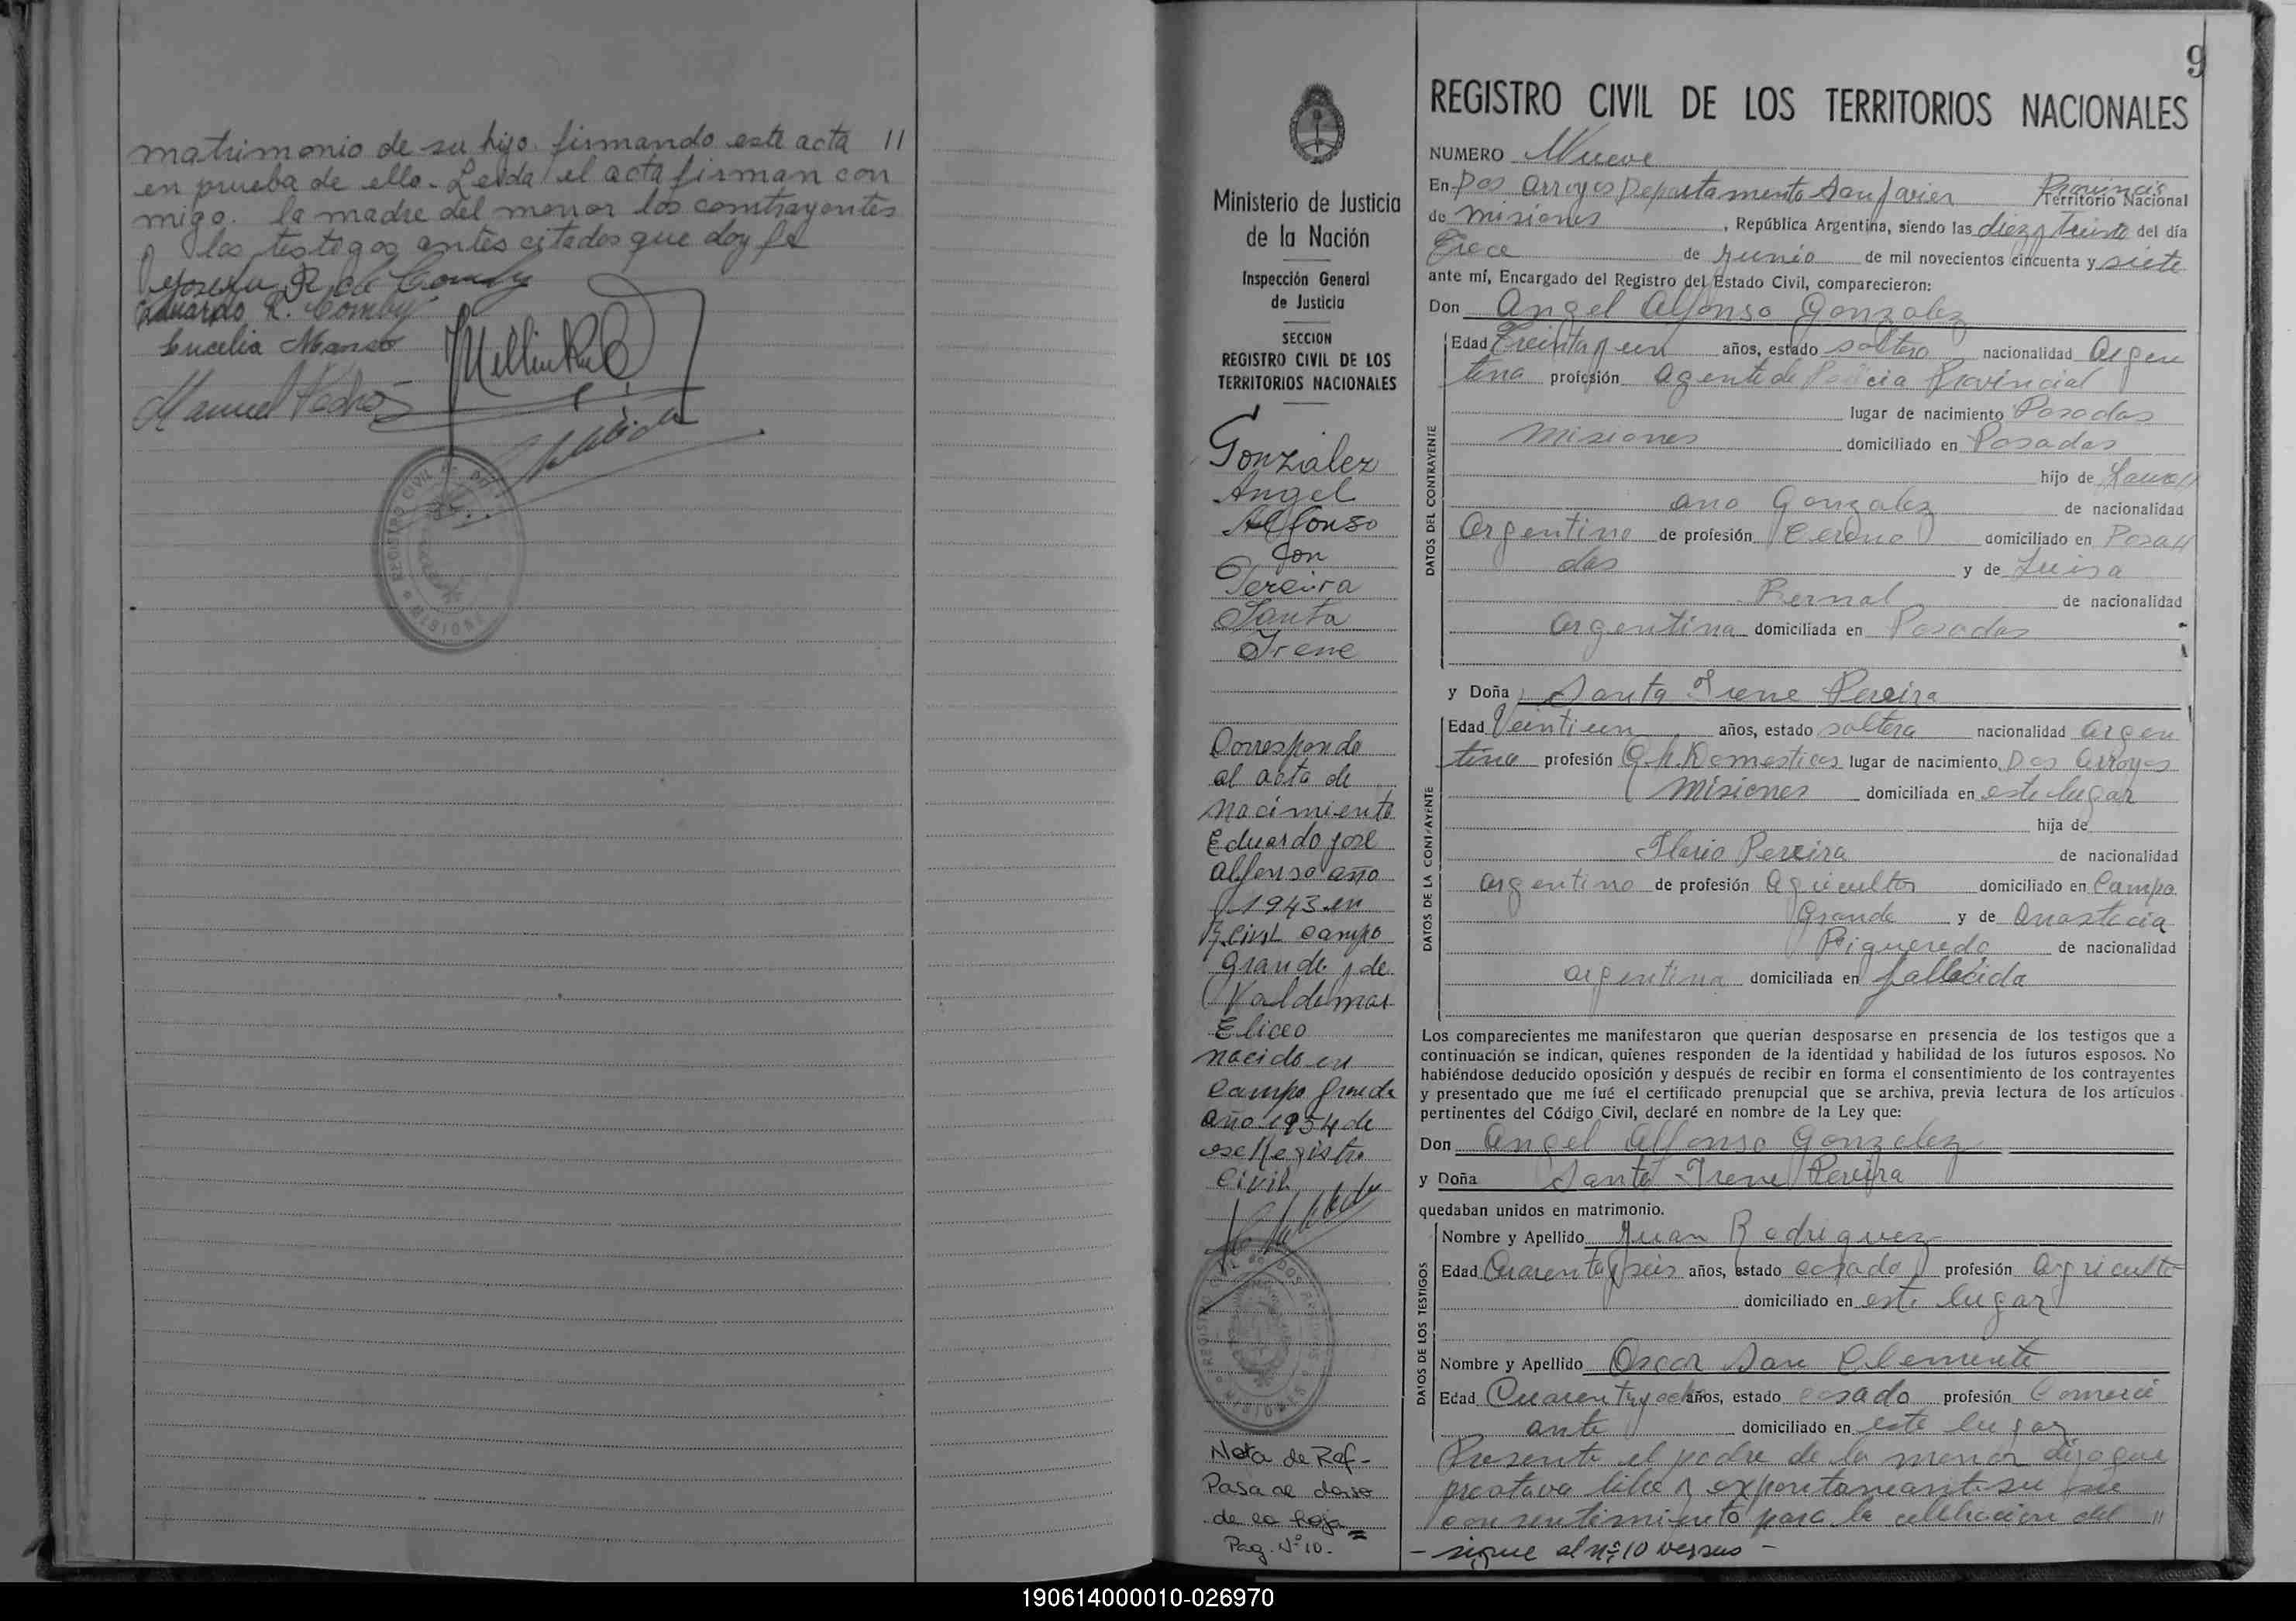 matrimonio de su hijo. firmando este acta //
en prueba de ello. Leida el acta firman con
migo. la madre del menor los contrayentes
y los testigos antes citados que doy fe
Eduardo R. Comby
Lucilia Manso
Manuel Pedro
REGISTRO CIVIL
MISIONES
9
Ministerio de Justicia
de la Nación
Inspección General
de Justicia
SECCION
REGISTRO CIVIL DE LOS
TERRITORIOS NACIONALES
Gonzalez
Angel
Alfonso
con
Pereira
Santa
Irene
Corresponde
al acta de
nacimiento
Eduardo jose
Alfonso año
1943 en
R. Civil Campo
grande y de
Valdemar
Eliceo
nacido en
Campo Grande
año 1954 de
ese Registro
Civil
REGISTRO CIVIL DOS ARROYOS
MISIONES
Nota de Ref-
Pasa al dorso
de la hoja =
Pag. Nº 10.-
REGISTRO CIVIL DE LOS TERRITORIOS NACIONALES
NUMERO Nueve
En Dos Arroyos Departamento San Javier Provincia Territorio Nacional
de Misiones, República Argentina, siendo las diez y treinta del día
Trece de Junio de mil novecientos cincuenta y siete
ante mí, Encargado del Registro del Estado Civil, comparecieron:
Don Angel Alfonso Gonzalez
DATOS DEL CONTRAYENTE
Edad Treinta y un años, estado soltero nacionalidad Argen
tina profesión Agente de Policia Provincial
lugar de nacimiento Posadas
Misiones domiciliado en Posadas
hijo de
ano Gonzalez de nacionalidad
Argentino de profesión Sereno domiciliado en Posa//
das y de Luisa
Bernal de nacionalidad
argentina domiciliada en Posadas
y Doña Santa Irene Pereira
DATOS DE LA CONTRAYENTE
Edad Veintiun años, estado soltera nacionalidad argen
tina profesión Q.H.Domesticos lugar de nacimiento Dos Arroyos
Misiones domiciliada en este lugar
hija de
Ilario Pereira de nacionalidad
argentino de profesión Agricultor domiciliado en Campo
Grande y de Anastacia
Piqueredo de nacionalidad
argentina domiciliada en fallecida
Los comparecientes me manifestaron que querían desposarse en presencia de los testigos que a
continuación se indican, quienes responden de la identidad y habilidad de los futuros esposos. No
habiéndose deducido oposición y después de recibir en forma el consentimiento de los contrayentes
y presentado que me fué el certificado prenupcial que se archiva, previa lectura de los artículos
pertinentes del Código Civil, declaré en nombre de la Ley que:
Don Angel Alfonso Gonzalez
y Doña Santa Irene Pereira
quedaban unidos en matrimonio.
DATOS DE LOS TESTIGOS
Nombre y Apellido Juan Rodriguez
Edad Cuarenta y seis años, estado casado profesión Agriculto
domiciliado en este lugar
Nombre y Apellido Oscar San Clemente
Edad Cuarentayocho años, estado casado profesión Comerci
ante domiciliado en este lugar
Presente el padre de la menor dijo que
prestava libre y expontaneamente su
consentimiento para la celebracion del //
- sigue al nº 10 verso -
190614000010-026970